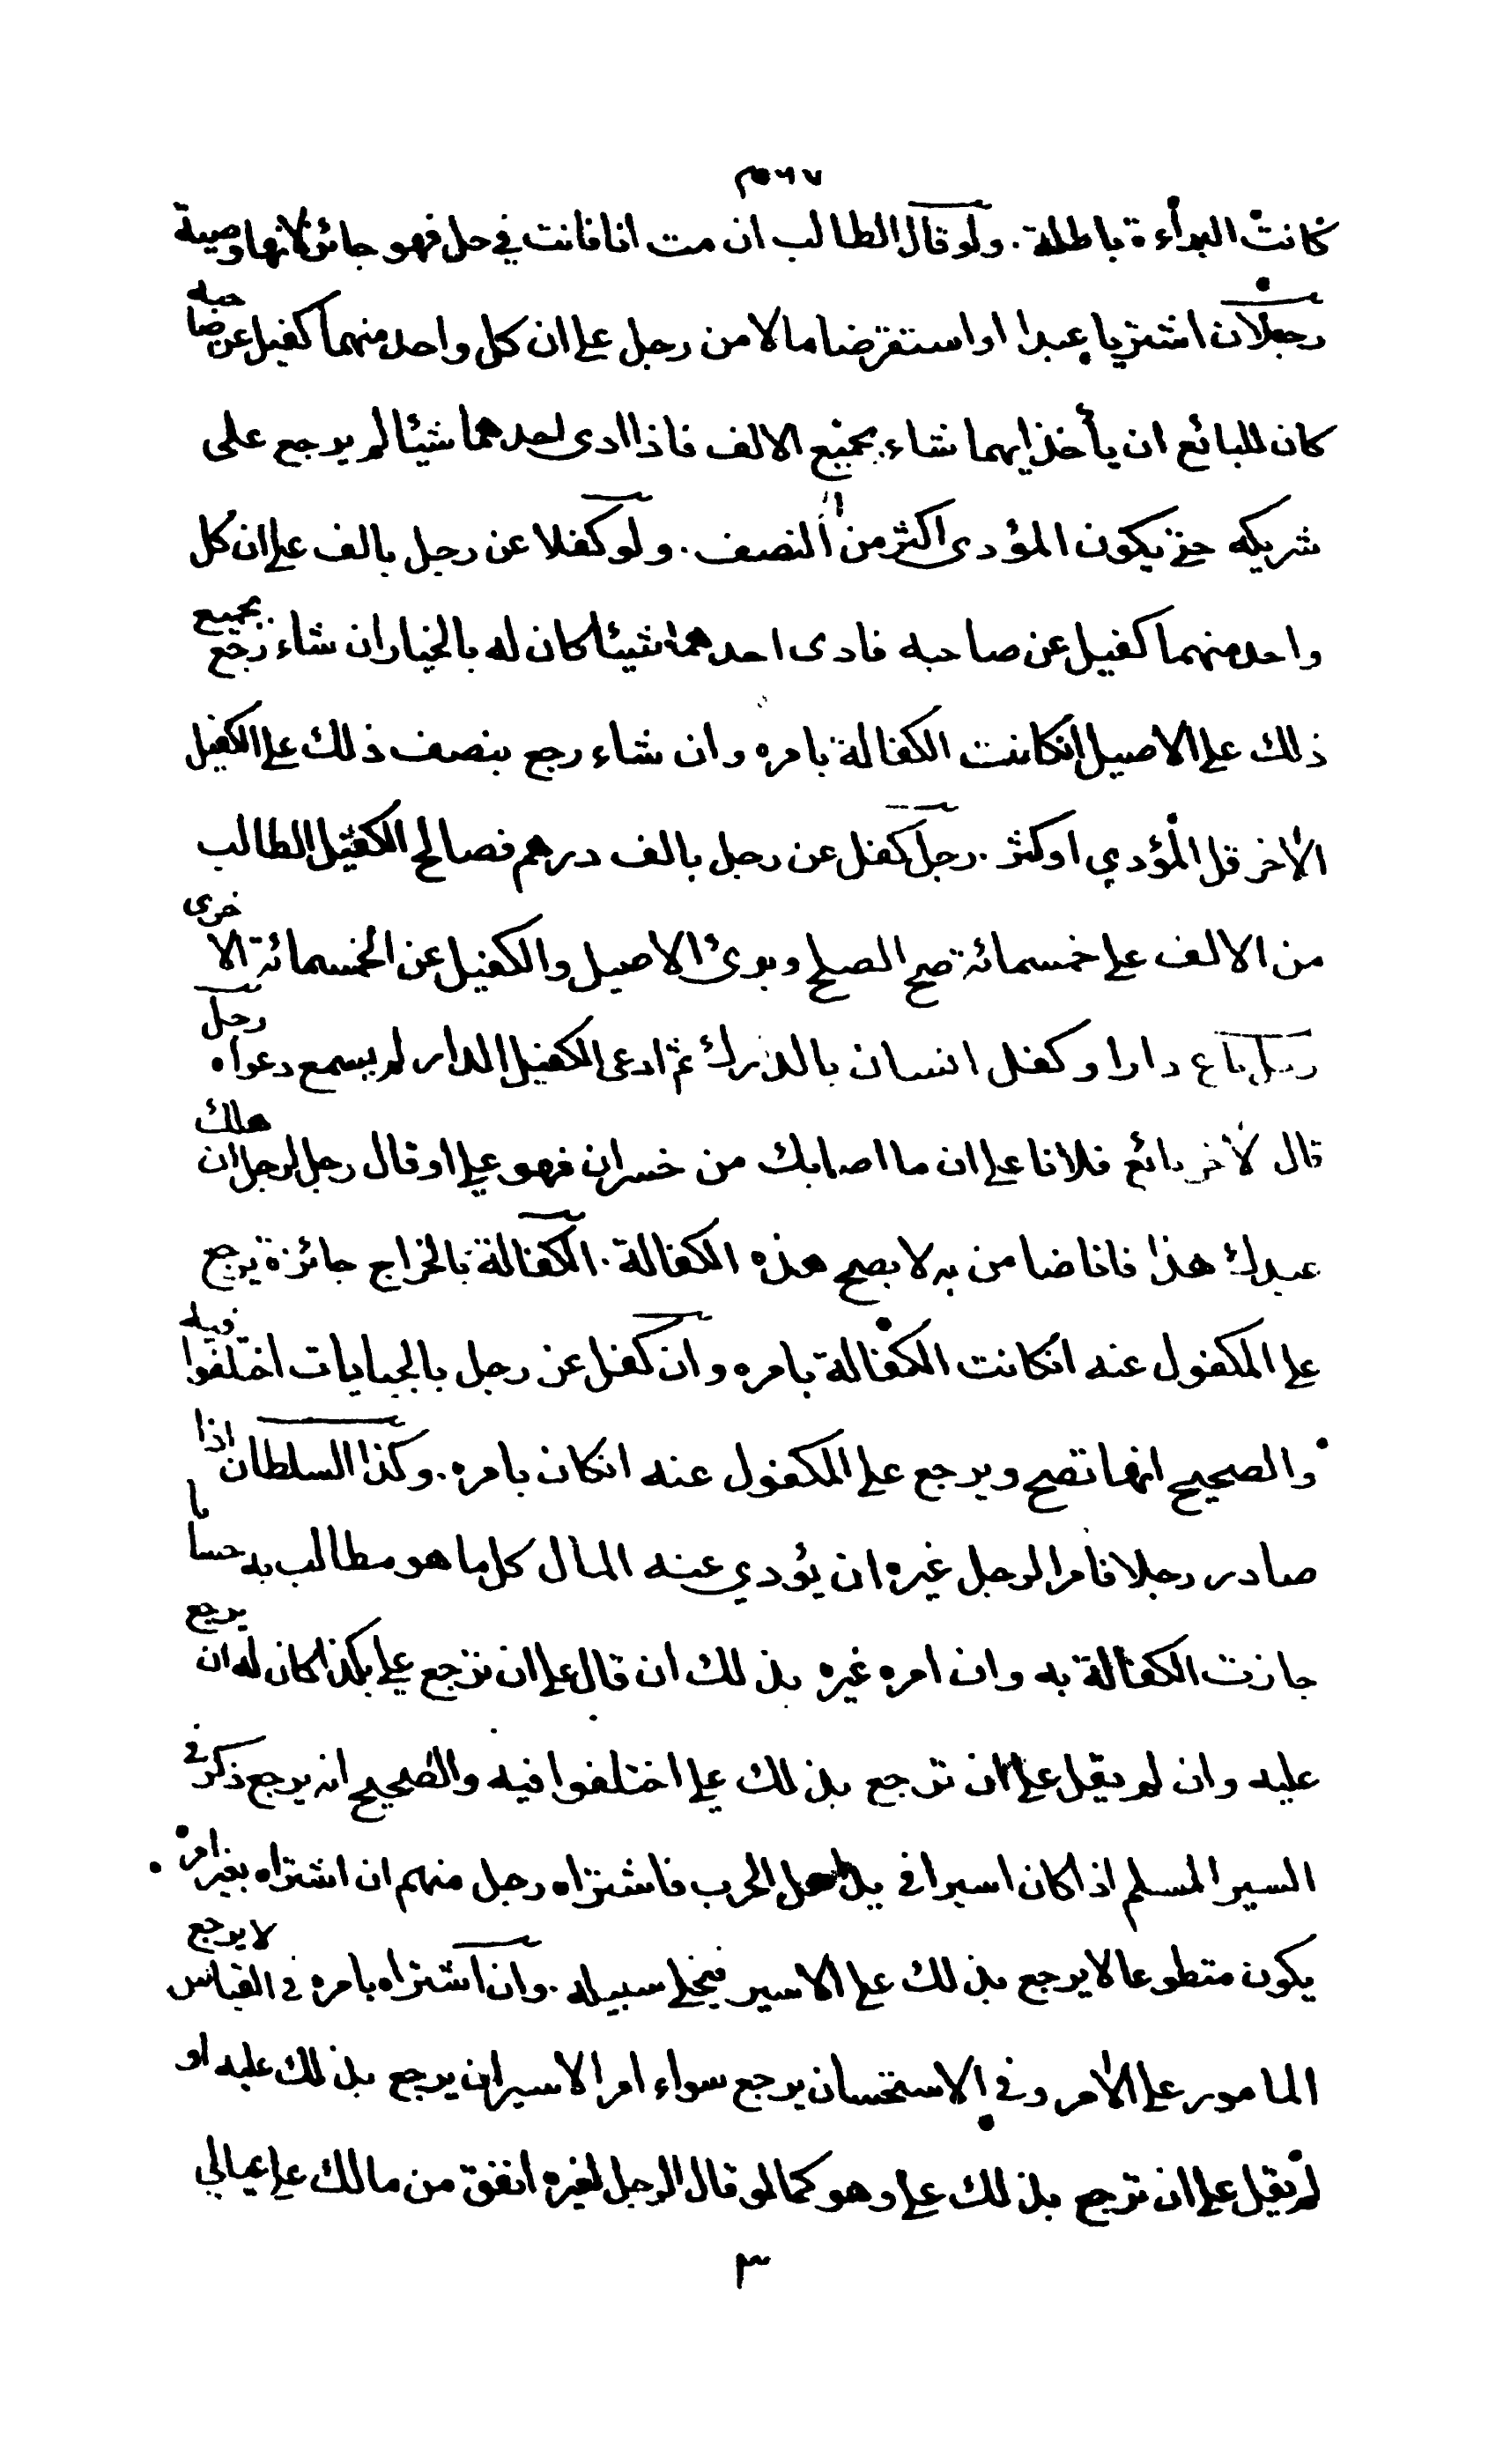 كانت البراءة باطلة. ولو قال الطالب ان مت انا فانت في حل فهو جائز لانها وصية
رجلان اشتريا عبدا او استقرضا مالا من رجل على ان كل واحد منهما كفيل عن صاحبه
كان للبائع ان يأخذ ايهما شاء بجميع الالف فاذا ادى احدهما شيئا لم يرجع على
شريكه حتى يكون المؤدى اكثر من النصف. ولو كفلا عن رجل بالف على ان كل
واحد منهما كفيل عن صاحبه فادى احدهما شيئا كان له بالخيار ان شاء رجع بجميع
ذلك على الاصيل انكانت الكفالة بامره وان شاء رجع بنصف ذلك على الكفيل
الاخر قل المؤدي او كثر. رجل كفل عن رجل بالف درهم فصالح الكفيل الطالب
من الالف على خمسمائة صح الصلح وبرئ الاصيل والكفيل عن الخمسمائة الاخرى
رجل باع دارا وكفل انسان بالدرك ثم ادعى الكفيل الدار لم يسمع دعواه رجل
قال لاخر بائع فلانا على ان ما اصابك من خسران فهو علي او قال رجل لرجل ان هلك
عبدك هذا فانا ضامن به لا يصح هذه الكفالة. الكفالة بالخراج جائزة يرجع
على المكفول عنه انكانت الكفالة بامره وان كفل عن رجل بالجبايات اختلفوا فيه
والصحيح انها تصح ويرجع على المكفول عنه انكان بامره. وكذا السلطان اذا
صادر رجلا فامر الرجل غيره ان يؤدي عنه المال كل ما هو مطالب به حسا
جازت الكفالة به وان امره غيره بذلك ان قال على ان ترجع علي بكذا كان له ان يرجع
عليه وان لم يقل على ان ترجع بذلك علي اختلفوا فيه والصحيح انه يرجع ذكر في
السير المسلم اذا كان اسيرا في يد اهل الحرب فاشتراه رجل منهم ان اشتراه بغير امره
يكون متطوعا لا يرجع بذلك على الاسير فيخلى سبيله. وان اشتراه بامره في القياس لا يرجع
المامور على الامر وفي الاستحسان يرجع سواء امر الاسير ان يرجع بذلك عليه او
لم يقل على ان ترجع بذلك علي وهو كما لو قال الرجل لغيره انفق من مالك على عيالي
٣